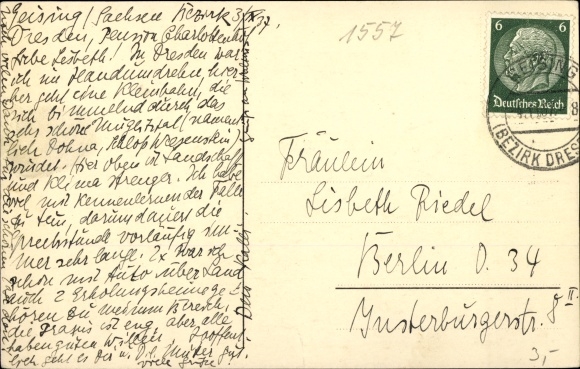 Geising/Sachsen Bezirk 3/IX 37
Dresden, Pension Charlottenhof
Liebe Lisbeth! In Dresden war
ich im Handumdrehn, hier-
her geht eine Kleinbahn, die
sich bimmelnd durch das
sehr schöne Müglitztal (nament-
lich Dohna, Schloß Wesenstein)
windet. Hier oben ist Landschaft
und Klima strenger. Ich habe
viel mit Kennenlernen der Fälle
zu tun, darum dauert die
Sprechstunde vorläufig im-
mer sehr lange. 2x war ich
schon mit Auto über Land
auch 2 Erholungsheime ge-
hören zu meinem Bereich,
die Praxis ist eng, aber alle
haben guten Willen. Hoffent-
lich geht es Dir u. D. Mutter gut.
viele Grüße!
Dein Walter
1557
6 6
Deutsches Reich
GEISING
BEZIRK DRES
Fräulein
Lisbeth Riedel
Berlin O. 34
Insterburgerstr. 8 II.
3,-